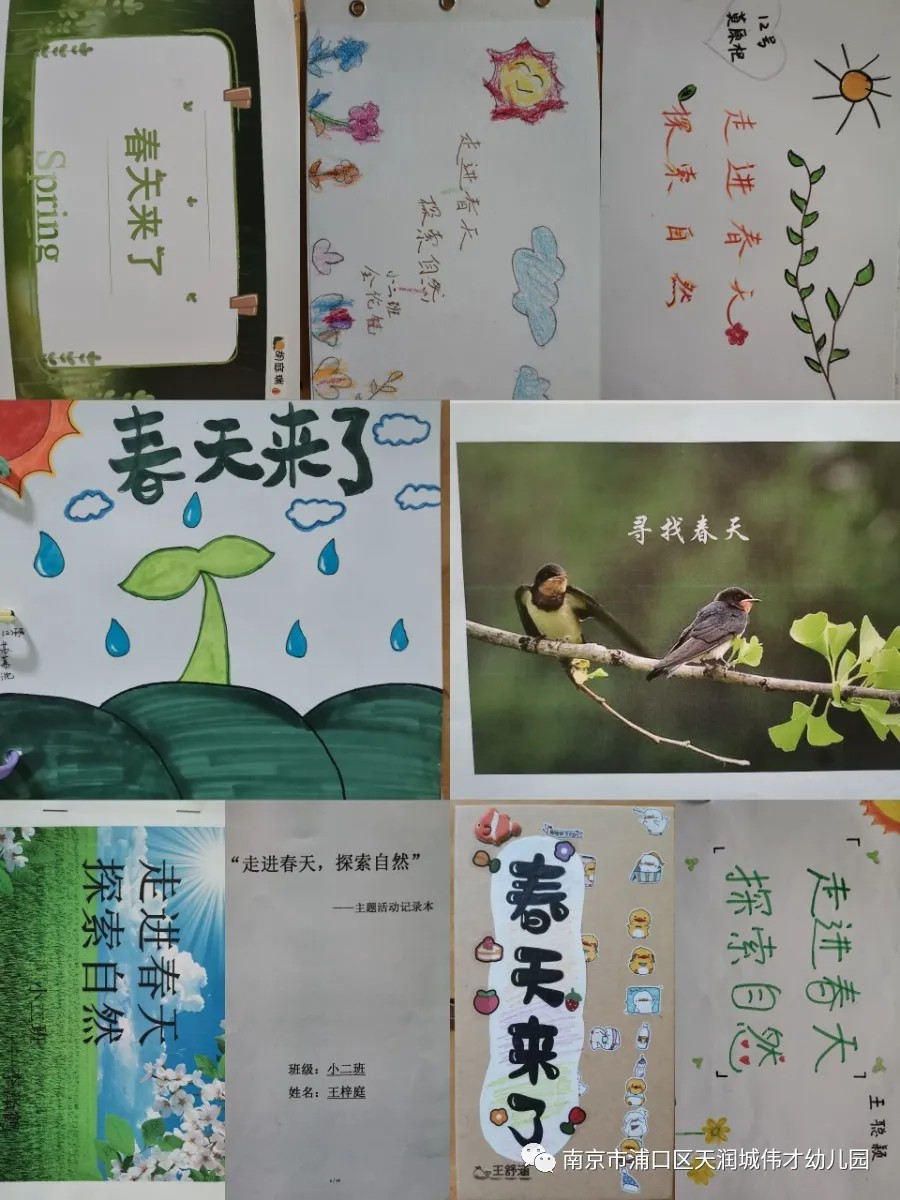 春天来了
Spring
走进春天
探索自然
小二班
12号
走进春天
探索自然
春天来了
寻找春天
走进春天
探索自然
“走进春天，探索自然”
——主题活动记录本
班级：小二班
姓名：王梓庭
春天来了
王舒涵
「走进春天
探索自然」
王聪颖
南京市浦口区天润城伟才幼儿园